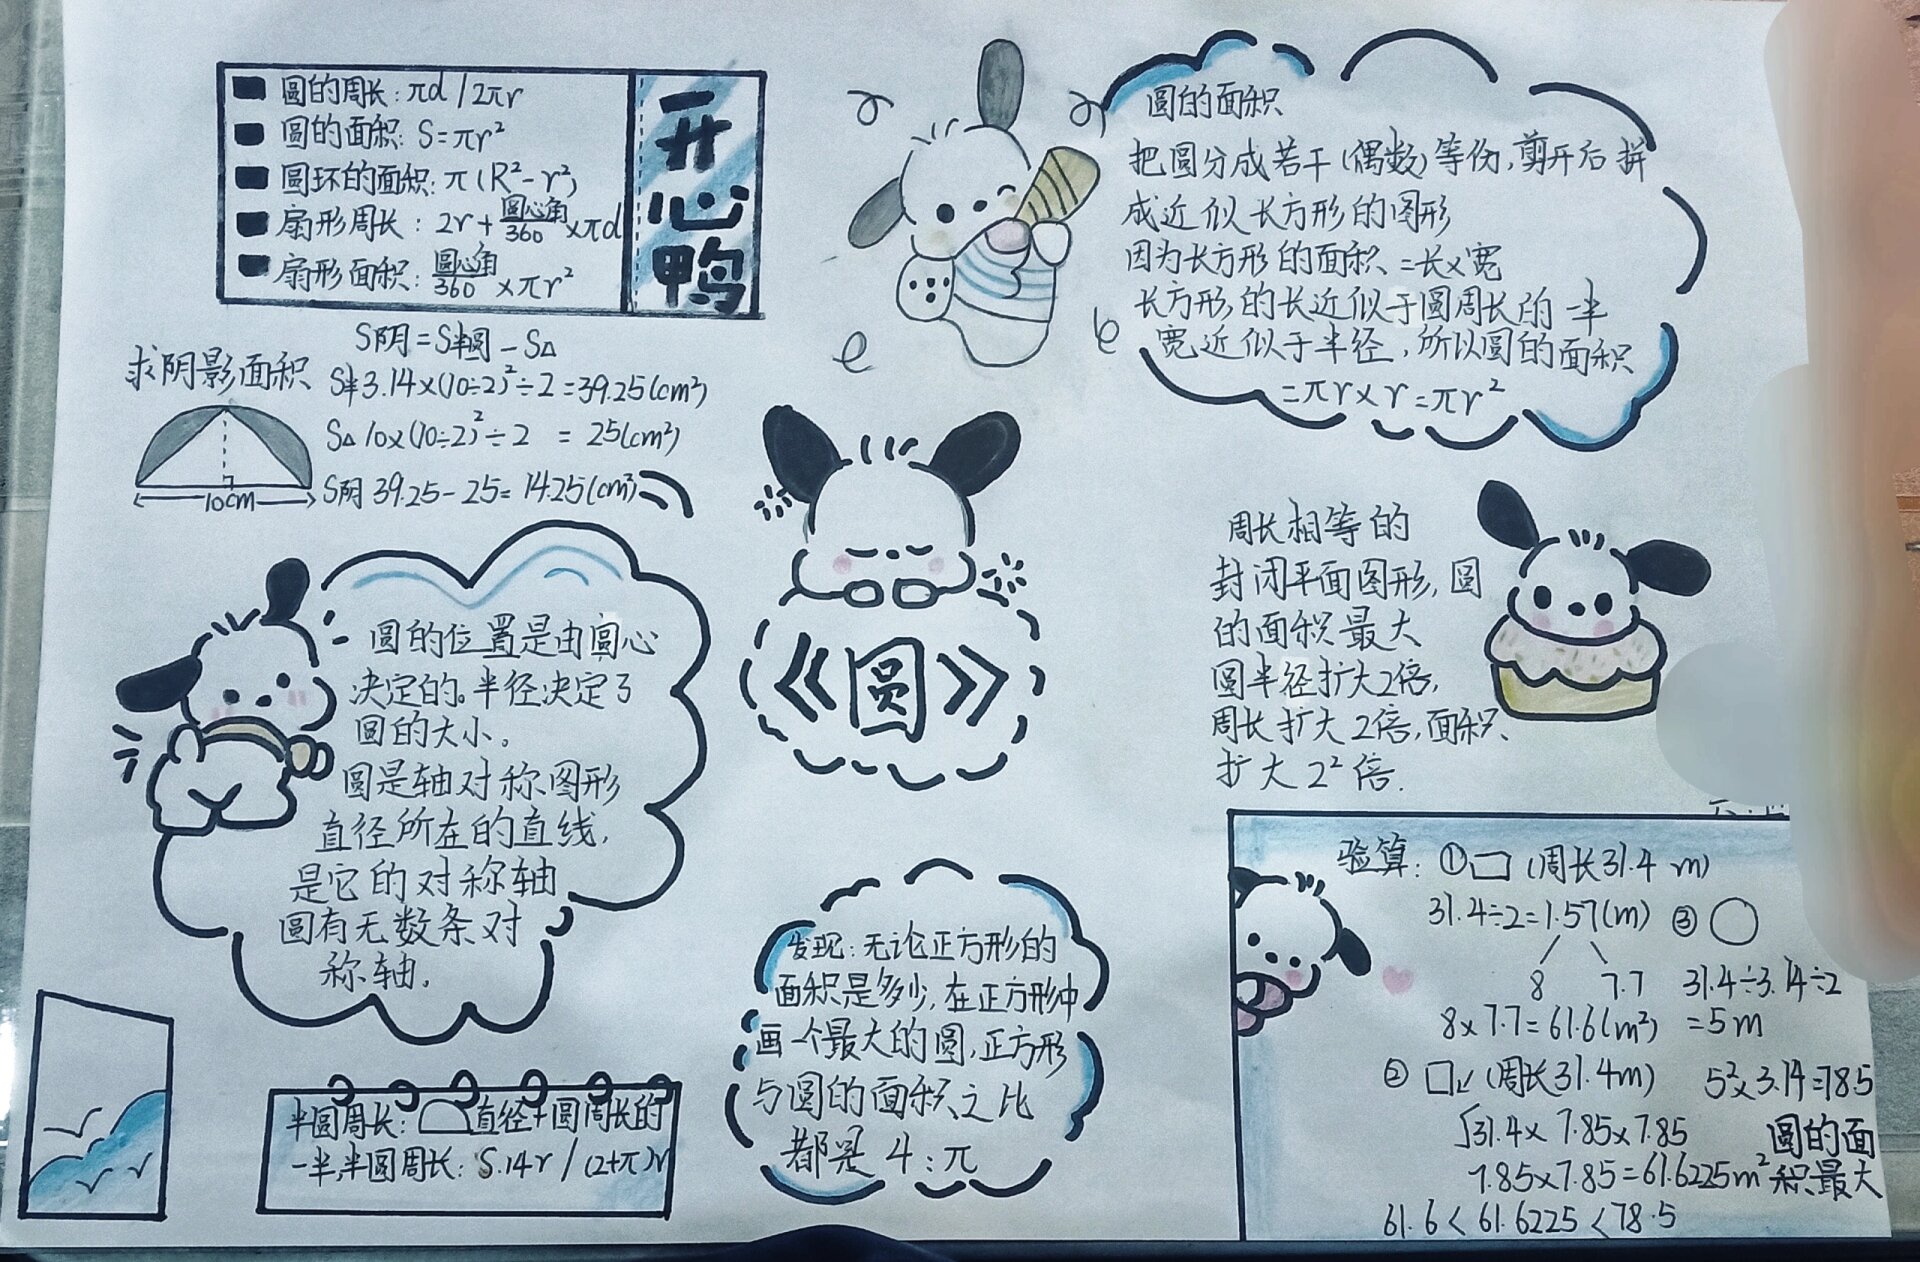 圆的周长:πd / 2πr
圆的面积:S=πr²
圆环的面积:π(R²-r²)
扇形周长:2r+圆心角/360×πd
扇形面积:圆心角/360×πr²
开心鸭
S阴=S半圆-S△
求阴影面积
S半3.14×(10÷2)²÷2=39.25(cm²)
S△10×(10÷2)²÷2 = 25(cm²)
S阴39.25-25=14.25(cm²)
10cm
圆的面积
把圆分成若干(偶数)等份,剪开后拼
成近似长方形的图形
因为长方形的面积=长×宽
长方形,的长近似于圆周长的一半
宽近似于半径,所以圆的面积
=πr×r=πr²
圆的位置是由圆心
决定的。半径决定了
圆的大小。
圆是轴对称图形
直径所在的直线,
是它的对称轴
圆有无数条对
称轴。
《圆》
周长相等的
封闭平面图形,圆
的面积最大
圆半径扩大2倍,
周长扩大2倍,面积
扩大2²倍.
半圆周长:直径+圆周长的
一半,半圆周长:5.14r/(2+π)r
发现:无论正方形的
面积是多少,在正方形中
画一个最大的圆,正方形
与圆的面积之比
都是4:π
验算:①(周长31.4 m)
31.4÷2=1.57(m)
8 7.7
8×7.7=61.6(m²)
②(周长31.4m)
31.4× 7.85×7.85
7.85×7.85=61.6225m²
③
31.4÷3.14÷2
=5m
5²×3.14=78.5
圆的面
积最大
61.6<61.6225<78.5